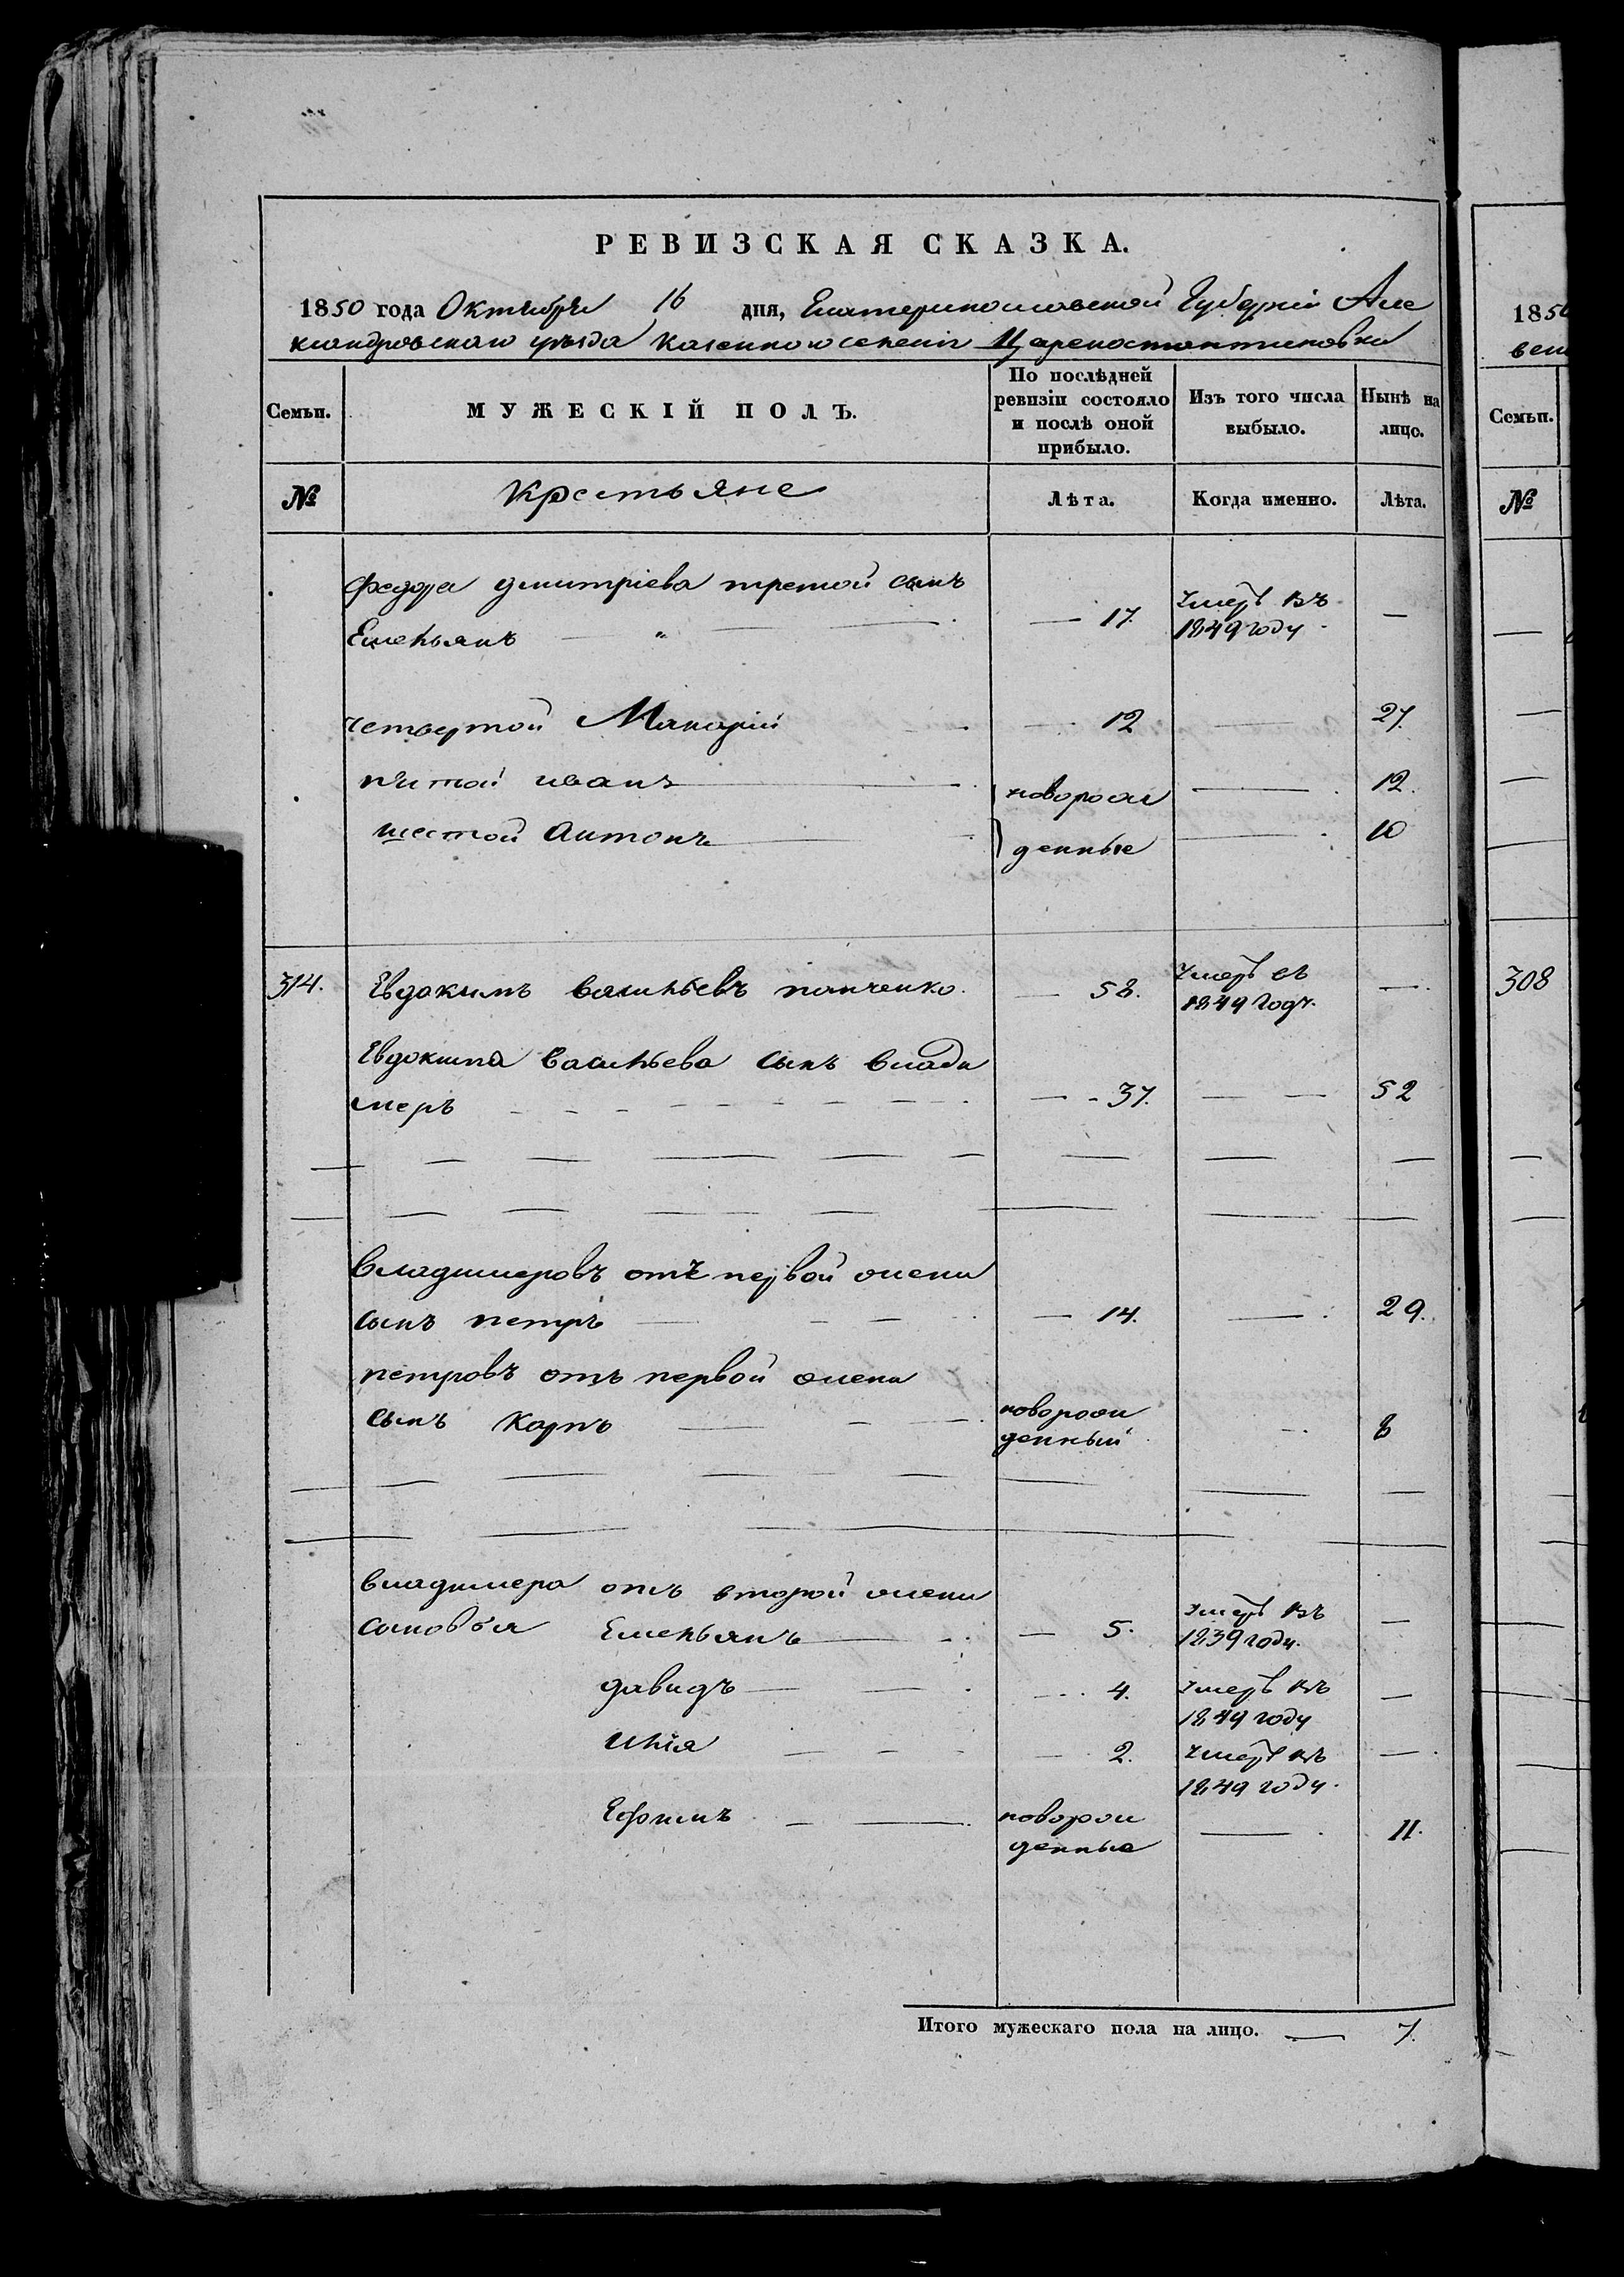 РЕВИЗСКАЯ СКАЗКА.
1850 года Октября 16 дня, Екатеринославской Губерніи Але
ксандровскаго уѣзда казеннаго селенія Цареконстантиновки
Семьи.
МУЖЕСКІЙ ПОЛЪ.
По послѣдней ревизіи состояло и послѣ оной прибыло.
Изъ того числа выбыло.
Нынѣ на лицо.
№
Крестьяне
Лѣта.
Когда именно.
Лѣта.
Федора Дмитріева третой сынъ
Емельянъ — " — 17. Умеръ въ 1849 году —
четвертой Макарій — 12 — 27.
пятой иванъ — новорож — 12.
шестой Антонъ — денные — 10
314. Евдокимъ Васильевъ панченко. — 58. Умеръ въ 1849 году. —
Евдокима Васильева сынъ Влади
меръ — 37. — 52
Владимеровъ отъ первой жены
сынъ петръ — 14. — 29.
петровъ отъ первой жены
сынъ Карпъ — новорож
денный — 8
Владимера отъ второй жены
сыновья Емельянъ — 5. умеръ въ 1839 году. —
давидъ — 4. умеръ въ 1849 году —
Илія — 2. умеръ въ 1849 году. —
Ефимъ — новорож
денные — 11.
Итого мужескаго пола на лицо. — 7.
1850
вен
Семьи.
№
308